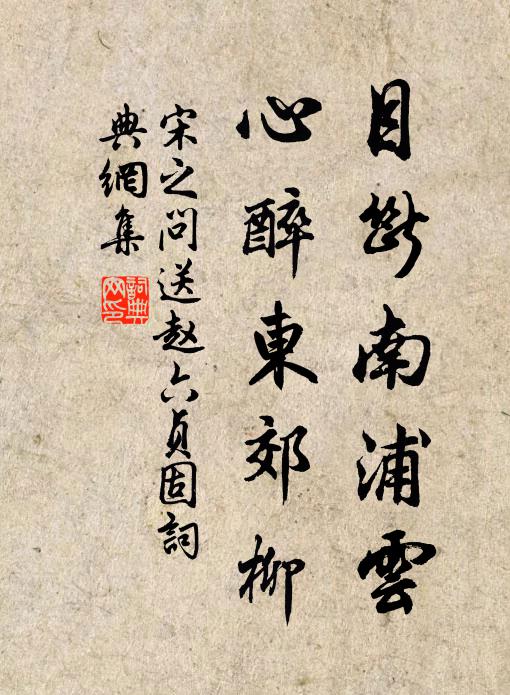 目斷南浦雲
心醉東郊柳
宋之问送赵六贞固詞
典網集
詞典
网印